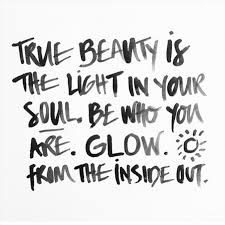 TRUE BEAUTY IS
THE LIGHT IN YOUR
SOUL. BE WHO YOU
ARE. GLOW.
FROM THE INSIDE OUT.